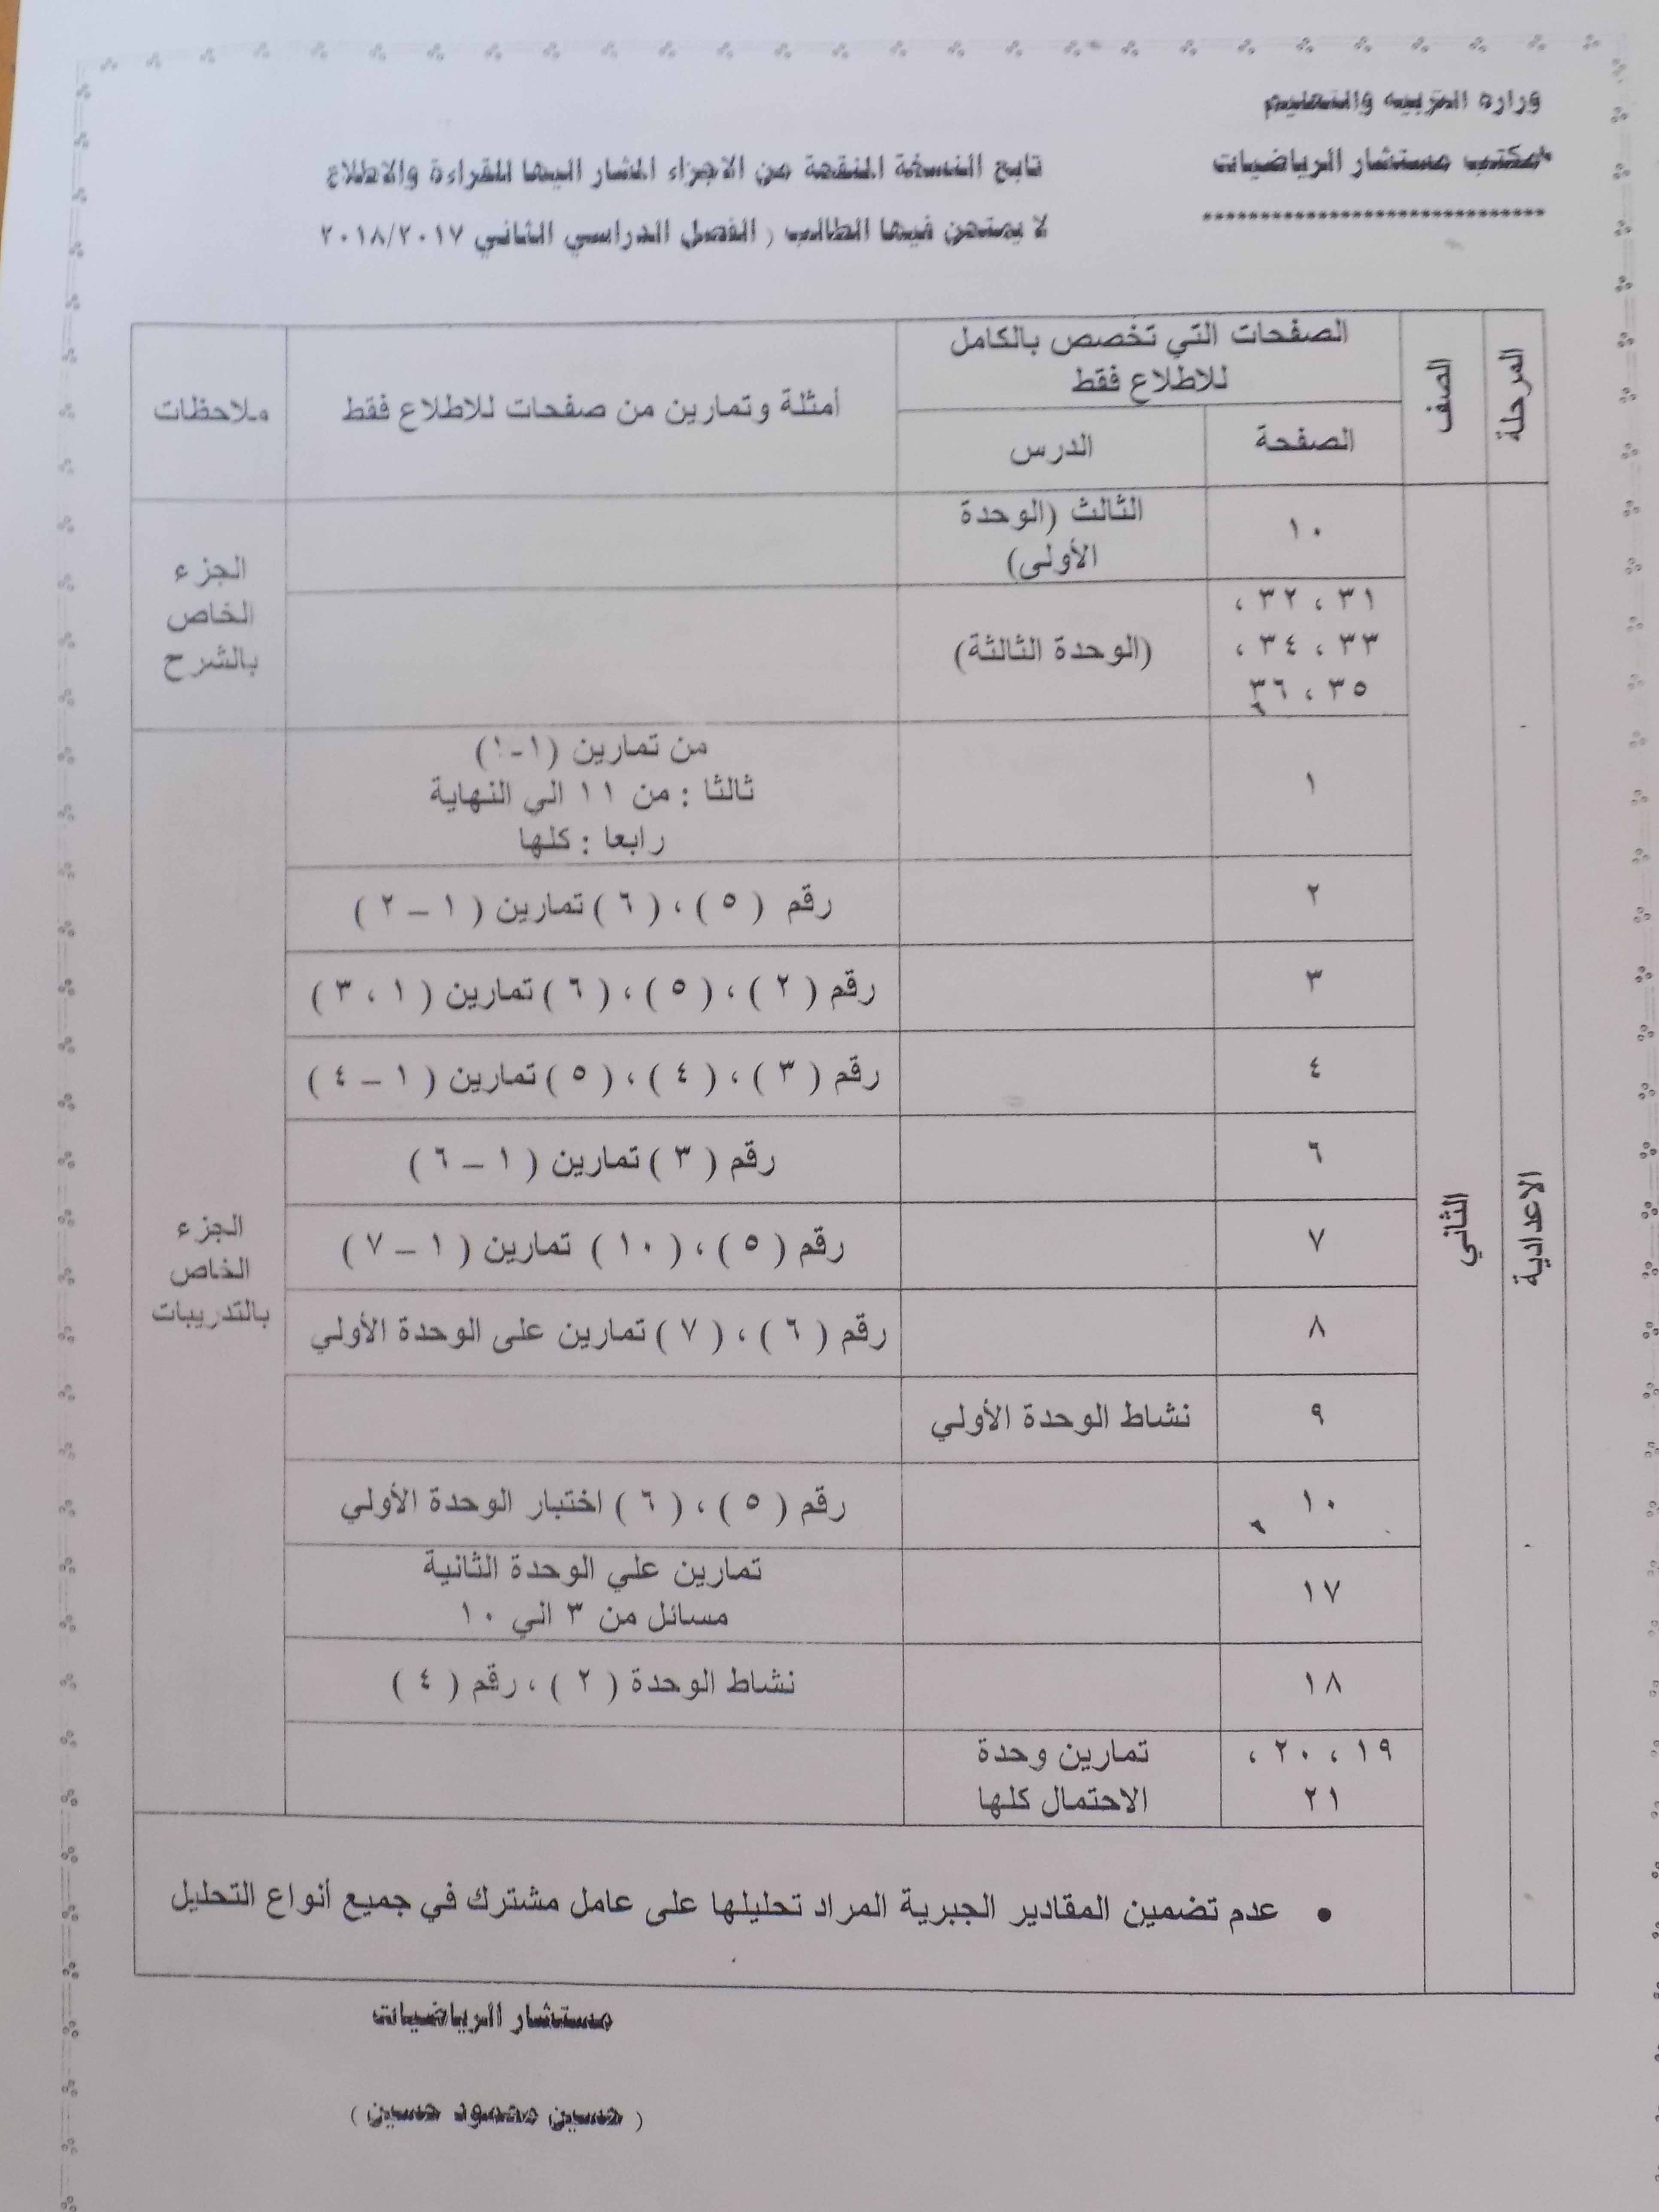 وزارة التربية والتعليم
مكتب مستشار الرياضيات
******************************
تابع النسخة المنقحة من الاجزاء المشار اليها للقراءة والاطلاع
لا يمتحن فيها الطالب ( الفصل الدراسي الثاني ٢٠١٨/٢٠١٧
المرحلة
الصف
الصفحات التي تخصص بالكامل
للاطلاع فقط
الصفحة
الدرس
أمثلة وتمارين من صفحات للاطلاع فقط
ملاحظات
الاعدادية
الثاني
١٠
الثالث (الوحدة
الأولى)
الجزء
الخاص
بالشرح
٣١ ، ٣٢ ،
٣٣ ، ٣٤ ،
٣٥ ، ٣٦
(الوحدة الثالثة)
١
من تمارين (١-١)
ثالثا : من ١١ الي النهاية
رابعا : كلها
الجزء
الخاص
بالتدريبات
٢
رقم ( ٥ ) ، ( ٦ ) تمارين ( ١ – ٢ )
٣
رقم ( ٢ ) ، ( ٥ ) ، ( ٦ ) تمارين ( ١ ، ٣ )
٤
رقم ( ٣ ) ، ( ٤ ) ، ( ٥ ) تمارين ( ١ – ٤ )
٦
رقم ( ٣ ) تمارين ( ١ – ٦ )
٧
رقم ( ٥ ) ، ( ١٠ ) تمارين ( ١ – ٧ )
٨
رقم ( ٦ ) ، ( ٧ ) تمارين على الوحدة الأولي
٩
نشاط الوحدة الأولي
١٠
رقم ( ٥ ) ، ( ٦ ) اختبار الوحدة الأولي
١٧
تمارين علي الوحدة الثانية
مسائل من ٣ الي ١٠
١٨
نشاط الوحدة ( ٢ ) ، رقم ( ٤ )
١٩ ، ٢٠ ،
٢١
تمارين وحدة
الاحتمال كلها
• عدم تضمين المقادير الجبرية المراد تحليلها على عامل مشترك في جميع أنواع التحليل
مستشار الرياضيات
( حسين محمود حسين )